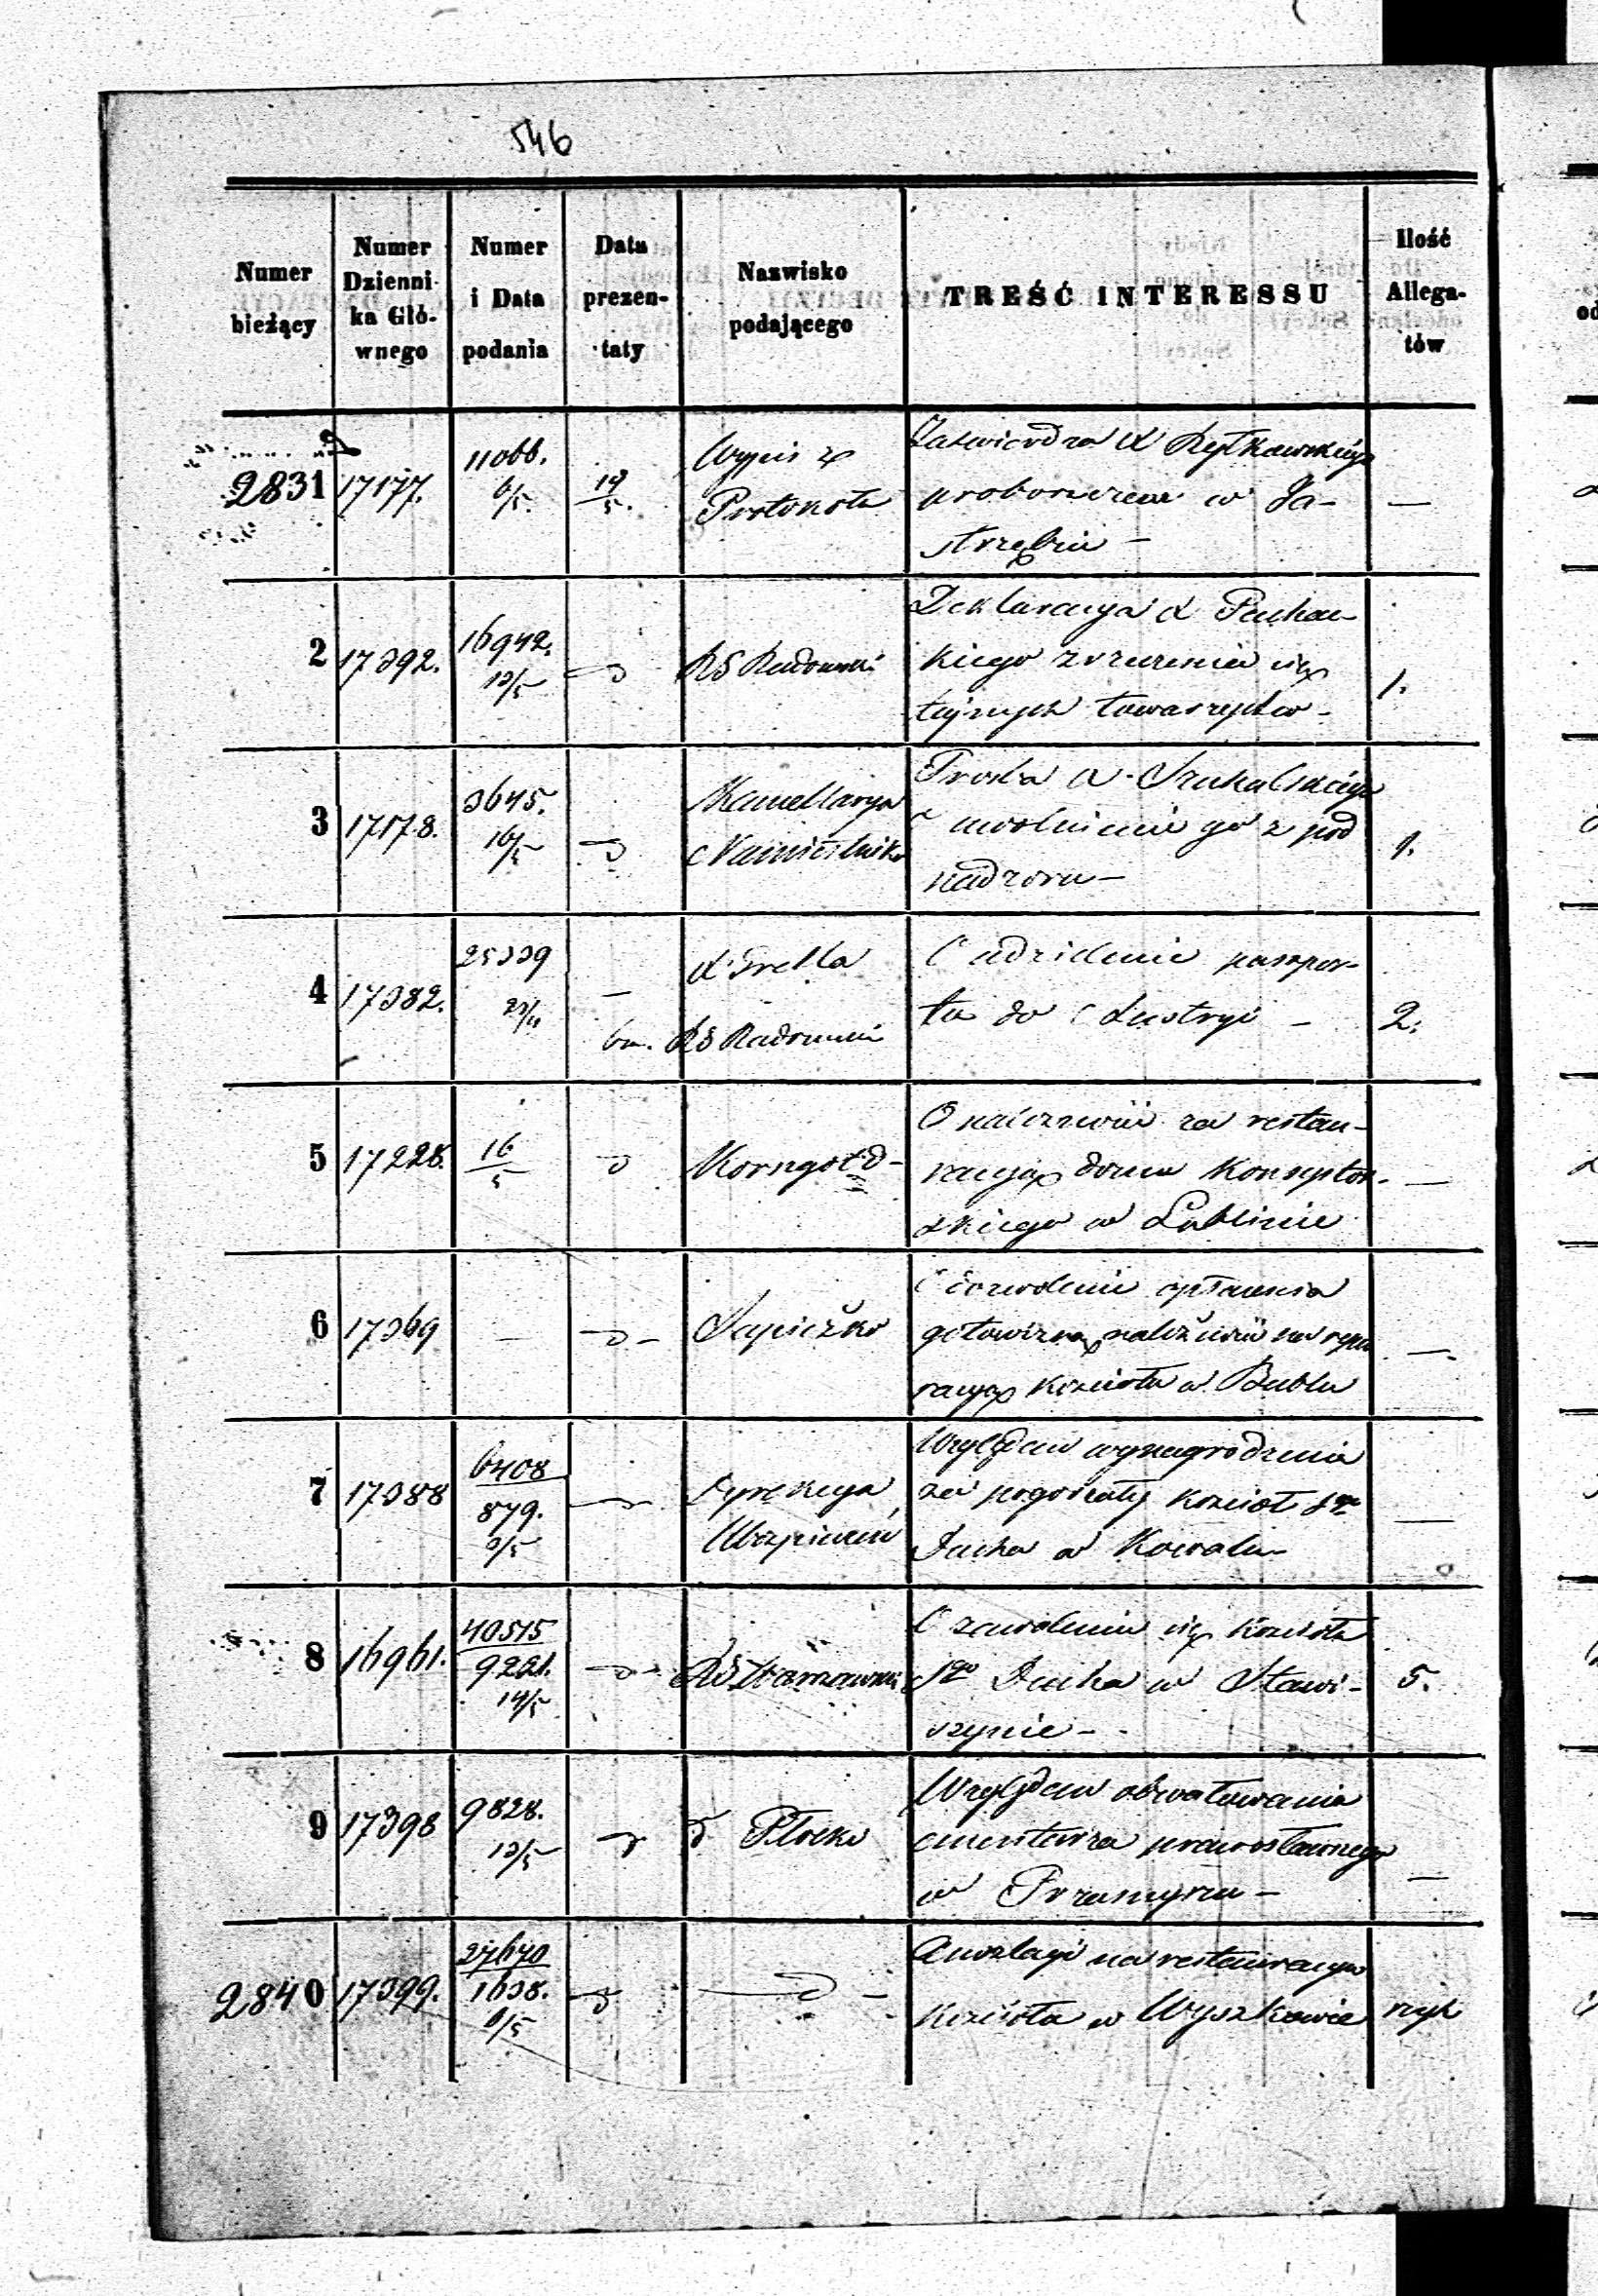 546
Numer bieżący
Numer Dzienni- ka Głó- wnego
Numer i Data podania
Data prezen- taty
Nazwisko podającego
TREŚĆ INTERESSU
Ilość Allega- tów
2831 17177. 11066. 6/5. 19/5. Wypis z Protokółu
Zatwierdza X Rytkowskiego
proboszczem w Ja-
strzębiu —
—
2 17392. 16942. 13/5 RG Radomski
Deklaracya X Puchal-
kiego zrzeczenia się
tajnych towarzystw - 1.
3 17178. 3645. 16/5 Kancellarya Namiestnika
Prośba X.
o uwolnienie go z pod
nadzoru — 1.
4 17382. 25339 23/11 — X Trella
bm. RG Radomski
O udzielenie paszpor-
tu do Austryi - 2.
5 17228. 16/5 Korngold -
O należność za restau-
racyą domu Konsystor-
skiego w Lublinie —
6 17369 — Sapieżko
O dozwolenie opłacenia
gotowizną należności na repa
racyą kościoła w Bublu —.
7 17388 6408/879. 3/5 Dyrekcya Ubezpieczeń
Względem wynagrodzenia
za pogorzały kościół Sgo
Ducha w Kowalu - —
8 16961. 40515/9221. 14/5 RG Warszawski
O zawaleniu się kościoła
Sgo Ducha w Stawi-
szynie - 5.
9 17398 9828. 13/5 d Płocki
Względem obwałowania
cmentarza prawosławnego
w Przasnyszu - —
2840 17399. 27670/1638. 6/5
Anszlagi na restauracyą
kościoła w Wyszkowie